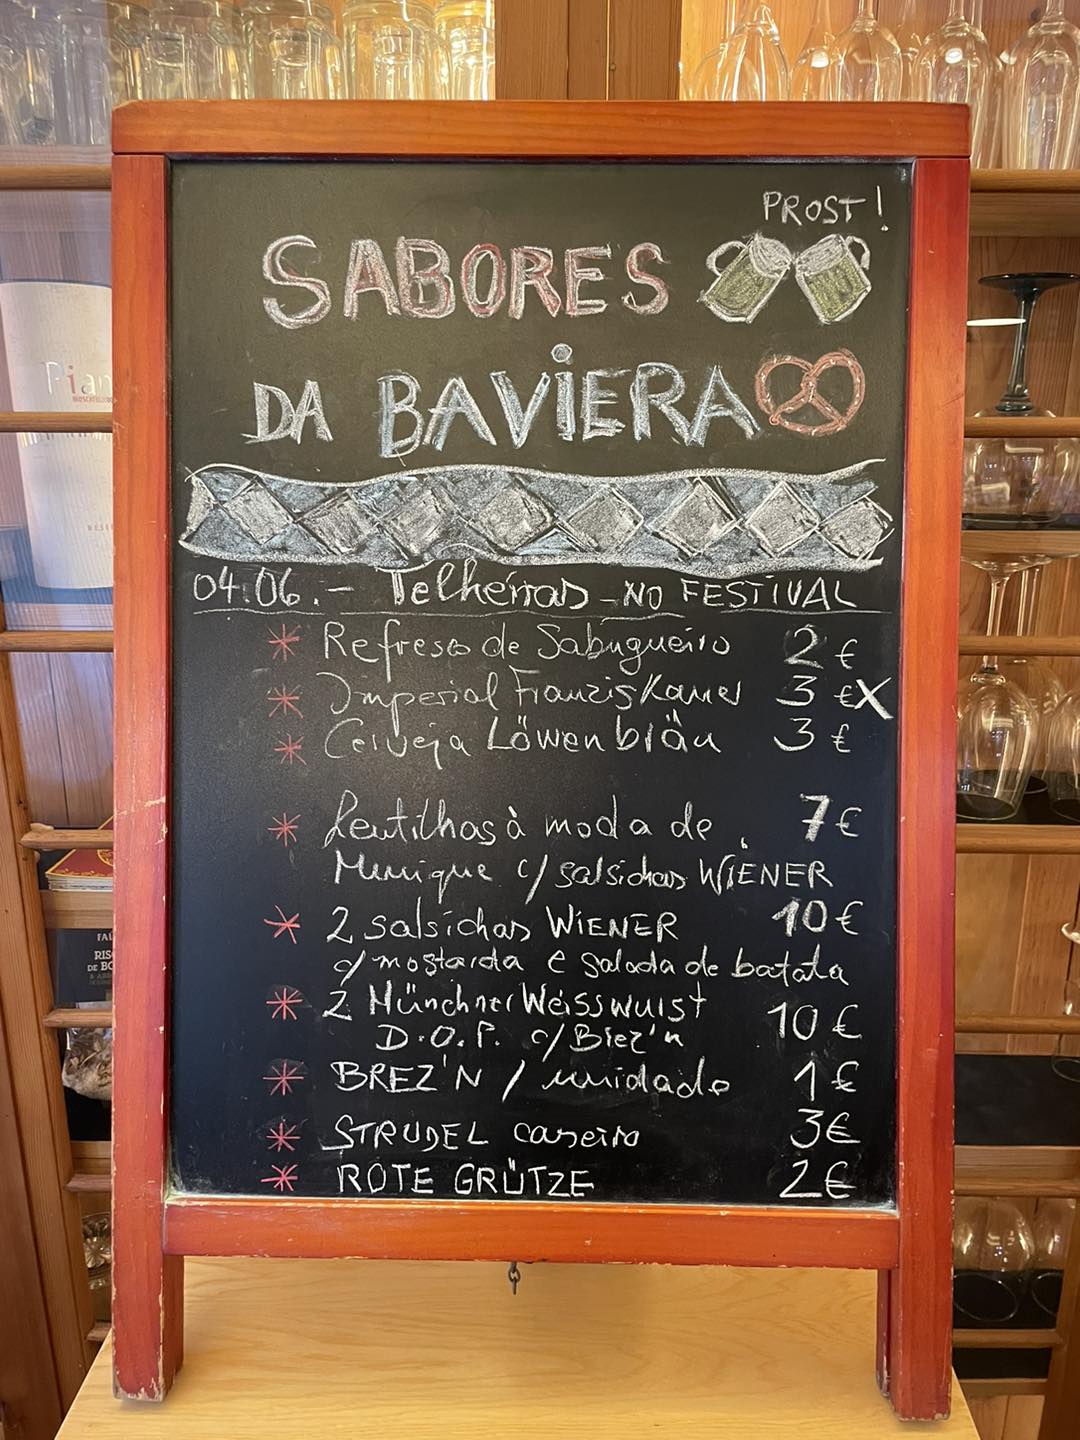 PROST!
SABORES
DA BAVIERA
04.06. - Telheiras - NO FESTIVAL
* Refresco de Sabugueiro 2 €
* Imperial Franziskaner 3 € X
* Cerveja Löwenbräu 3 €
* Lentilhas à moda de 7 €
Munique c/ salsichas WIENER
* 2 salsichas WIENER 10 €
c/ mostarda e salada de batata
* 2 Münchner Weisswurst
D.O.P. c/ Brez'n 10 €
* BREZ'N / unidade 1 €
* STRUDEL caseiro 3 €
* ROTE GRÜTZE 2 €
RIS
DE BO